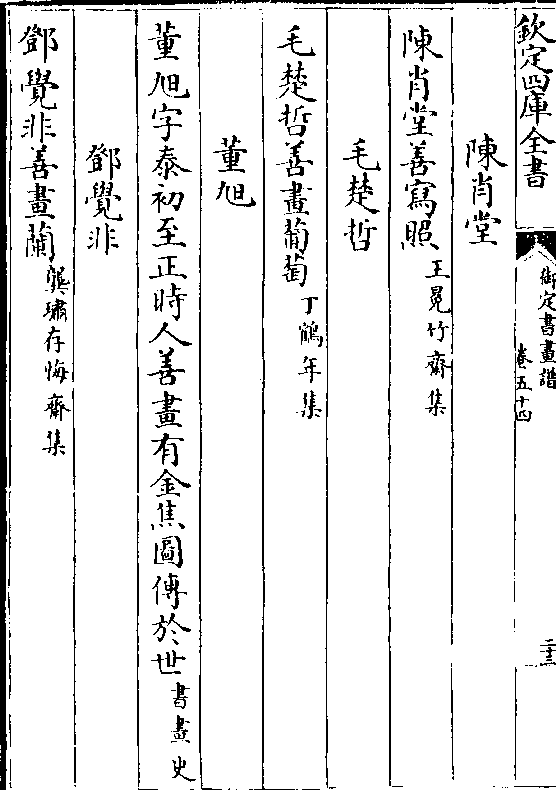 欽定四庫全書
御定書畫譜
卷五十四
二十三
陳肖堂
陳肖堂善寫照王冕竹齋集
毛楚哲
毛楚哲善畫葡萄丁鶴年集
董旭
董旭字泰初至正時人善畫有金焦圖傳於世書畫史
鄧覺非
鄧覺非善畫蘭龔璛存悔齋集